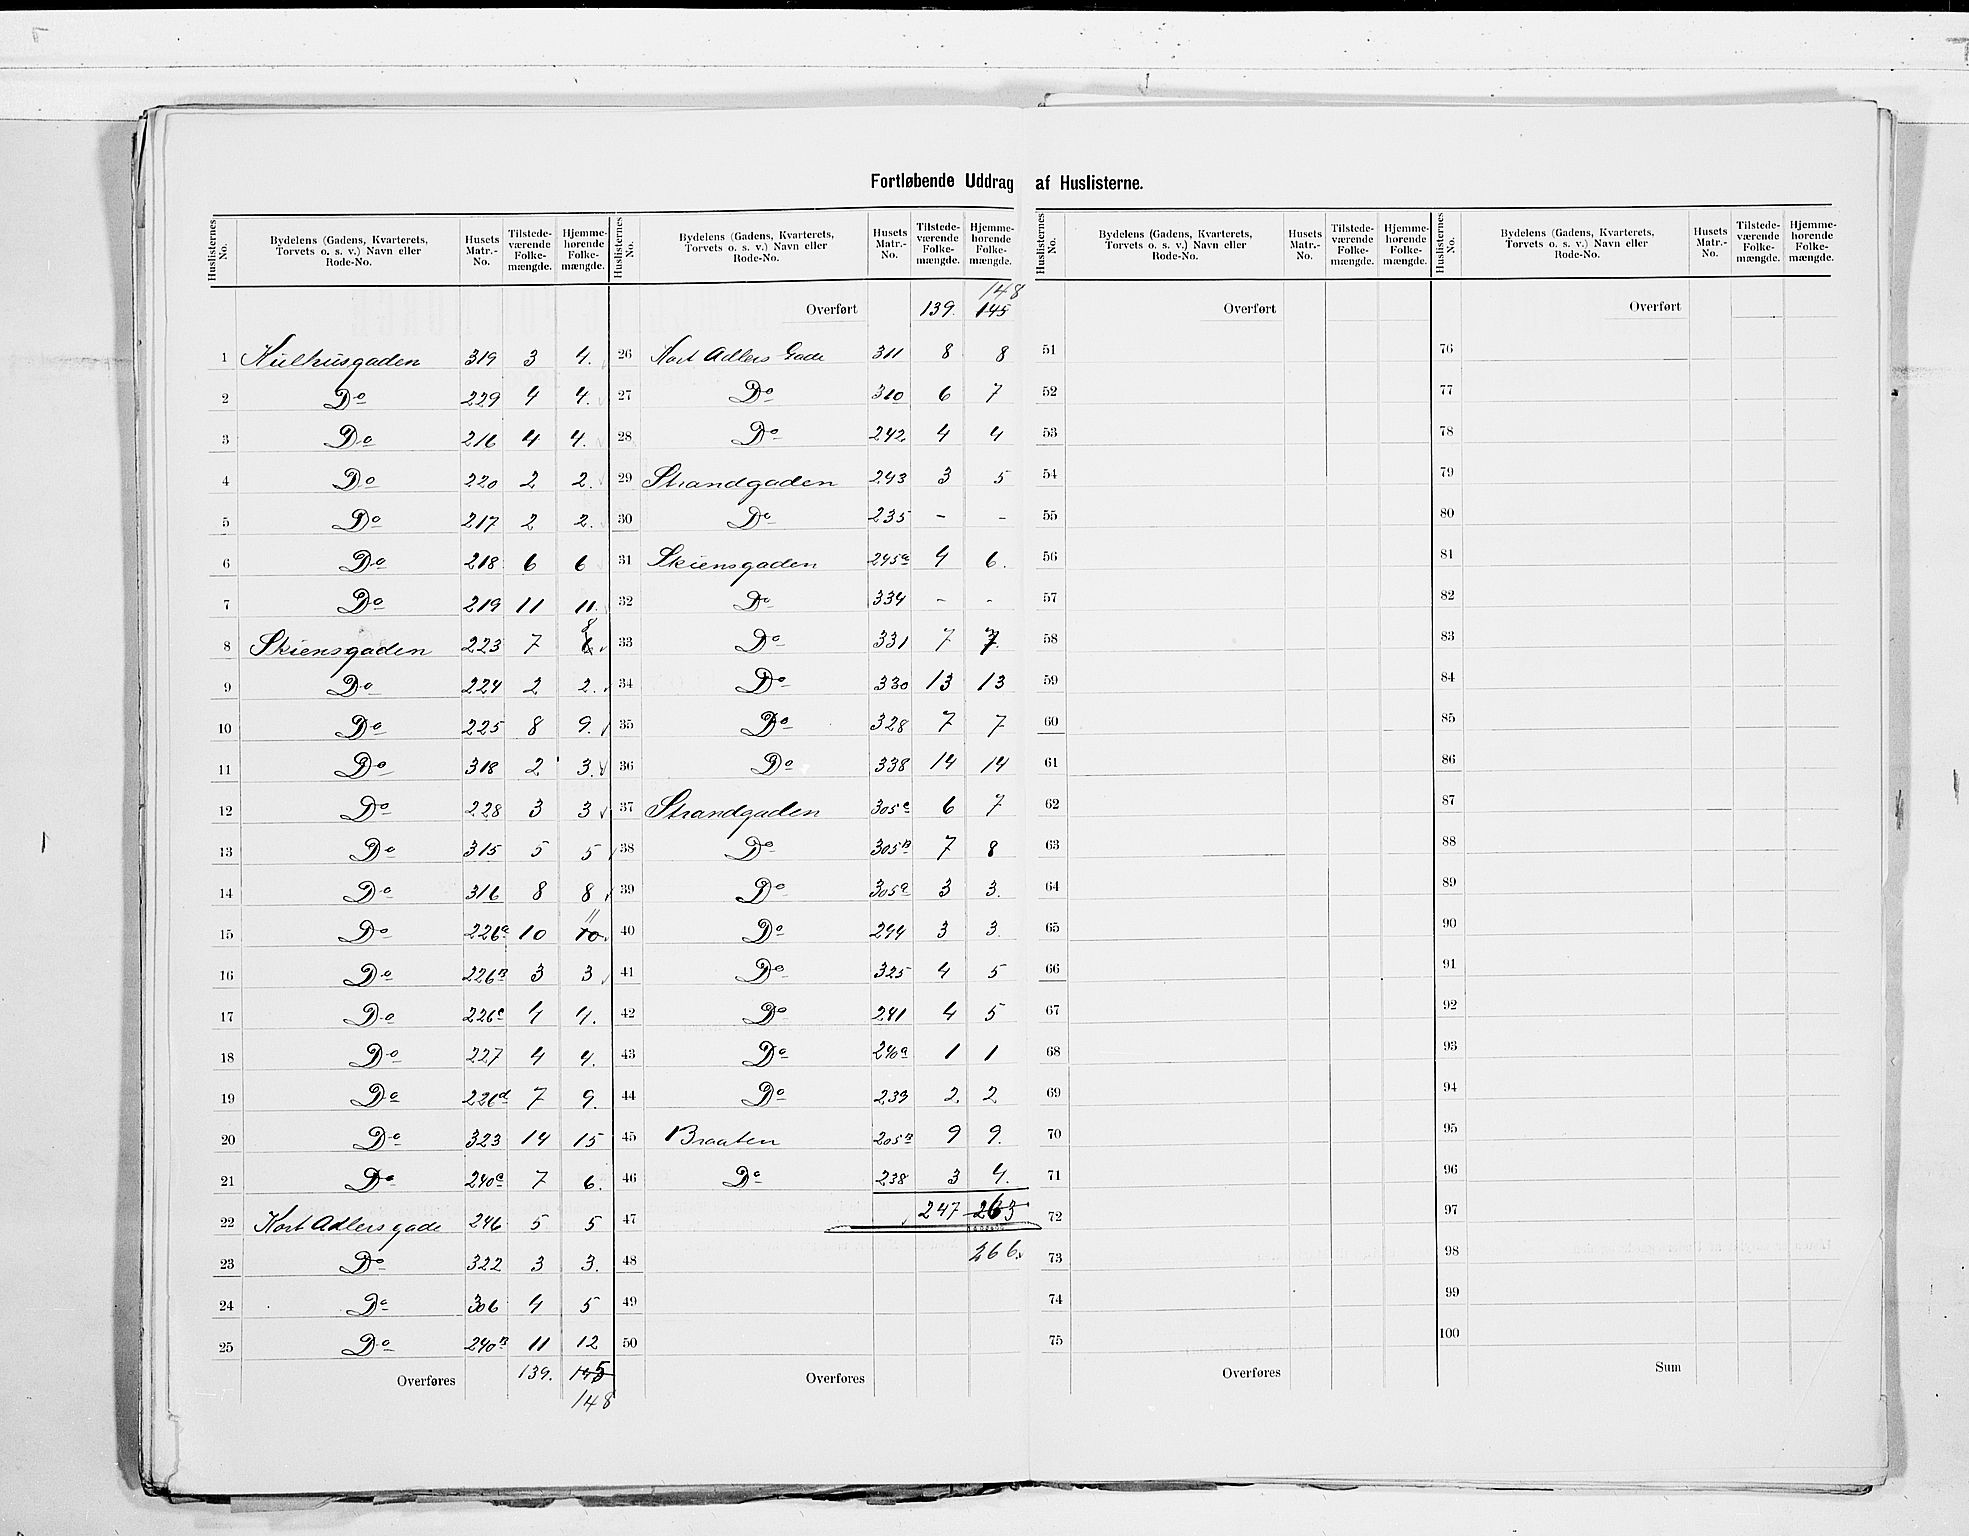 Fortløbende Uddrag af Huslisterne.
Huslisternes No. | Bydelens (Gadens, Kvarterets, Torvets o. s. v.) Navn eller Rode-No. | Husets Matr.-No. | Tilstedeværende Folkemængde. | Hjemmehørende Folkemængde.
1 Kulhusgaden 319 3 4.
2 Do 229 4 4.
3 Do 216 4 4.
4 Do 220 2 2.
5 Do 217 2 2.
6 Do 218 6 6
7 Do 219 11 11.
8 Skiensgaden 223 7 6 8
9 Do 224 2 2.
10 Do 225 8 9.
11 Do 318 2 3.
12 Do 228 3 3
13 Do 315 5 5
14 Do 316 8 8
15 Do 226a 10 10 11
16 Do 226b 3 3
17 Do 226c 4 4.
18 Do 227 4 4.
19 Do 226d 7 9.
20 Do 323 14 15
21 Do 240c 7 6.
22 Kort Adlers gade 246 5 5
23 Do 322 3 3.
24 Do 306 4 5
25 Do 240b 11 12
Overføres 139. 145
148
Huslisternes No. | Bydelens (Gadens, Kvarterets, Torvets o. s. v.) Navn eller Rode-No. | Husets Matr.-No. | Tilstedeværende Folkemængde. | Hjemmehørende Folkemængde.
148
Overført 139. 145
26 Kort Adlers Gade 311 8 8
27 Do 310 6 7
28 Do 242 4 4
29 Strandgaden 243 3 5
30 Do 235 - -
31 Skiensgaden 245a 4 6.
32 Do 334 - -
33 Do 331 7 7.
34 Do 330 13 13
35 Do 328 7 7
36 Do 338 14 14
37 Strandgaden 305c 6 7
38 Do 305b 7 8
39 Do 305a 3 3.
40 Do 244 3 3.
41 Do 325 4 5
42 Do 241 4 5
43 Do 240a 1 1
44 Do 233 2. 2
45 Braaten 205b 9 9.
46 Do 238 3 4.
47 247 263
48 266.
49
50
Overføres
Huslisternes No. | Bydelens (Gadens, Kvarterets, Torvets o. s. v.) Navn eller Rode-No. | Husets Matr.-No. | Tilstedeværende Folkemængde. | Hjemmehørende Folkemængde.
Overført
51
52
53
54
55
56
57
58
59
60
61
62
63
64
65
66
67
68
69
70
71
72
73
74
75
Overføres
Huslisternes No. | Bydelens (Gadens, Kvarterets, Torvets o. s. v.) Navn eller Rode-No. | Husets Matr.-No. | Tilstedeværende Folkemængde. | Hjemmehørende Folkemængde.
Overført
76
77
78
79
80
81
82
83
84
85
86
87
88
89
90
91
92
93
94
95
96
97
98
99
100
Sum